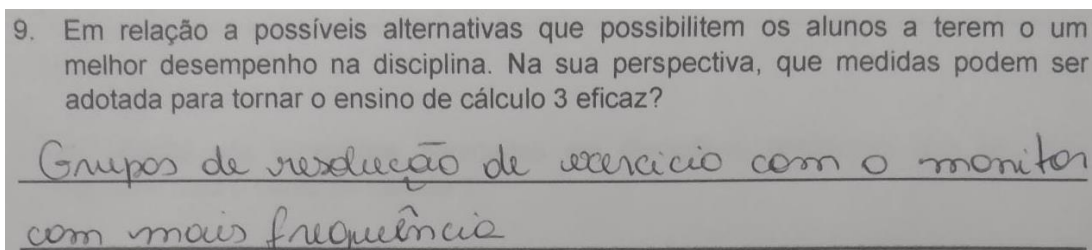 9. Em relação a possíveis alternativas que possibilitem os alunos a terem o um
melhor desempenho na disciplina. Na sua perspectiva, que medidas podem ser
adotada para tornar o ensino de cálculo 3 eficaz?
Grupos de resolução de exercicio com o monitor
com mais frequência